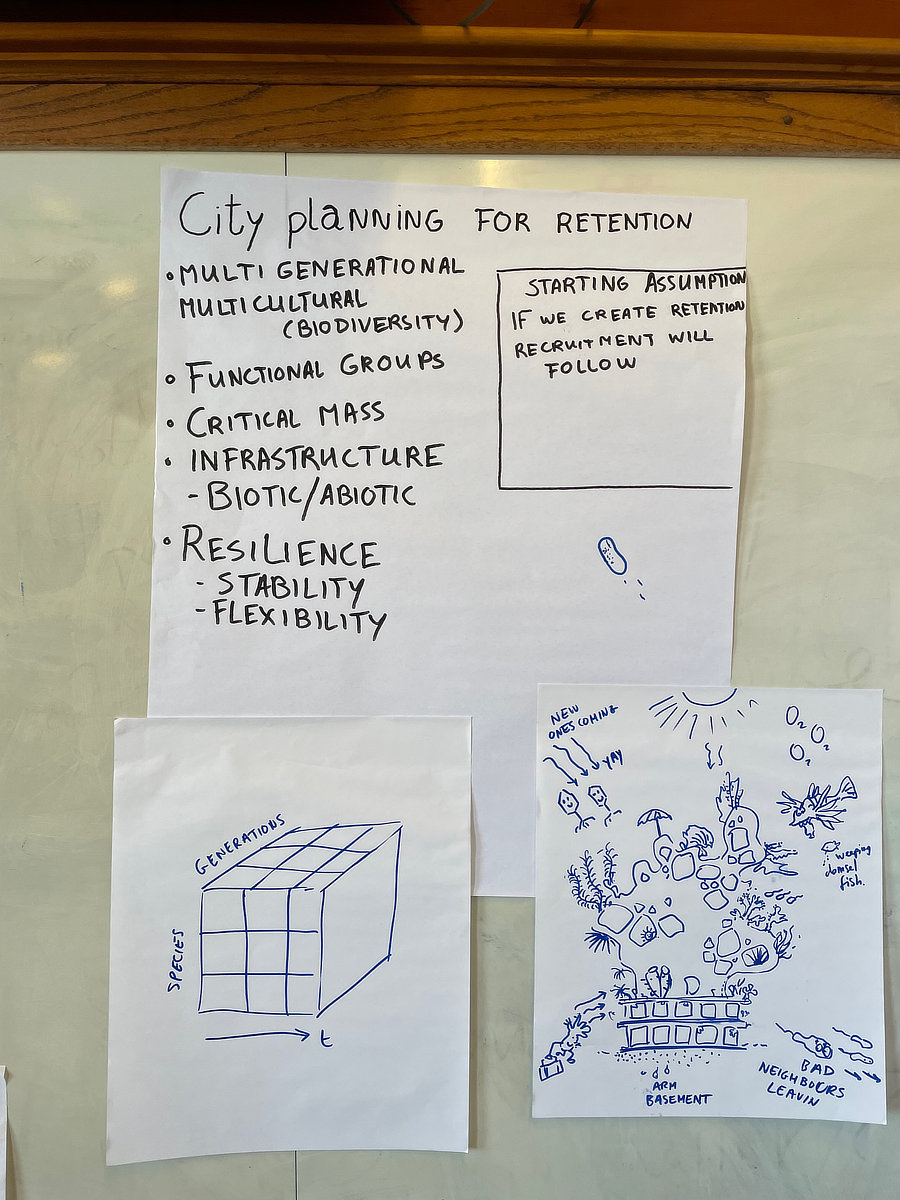 City planning FOR RETENTION
• MULTI GENERATIONAL
MULTICULTURAL
(BIODIVERSITY)
• FUNCTIONAL GROUPS
• CRITICAL MASS
• INFRASTRUCTURE
- BIOTIC/ABIOTIC
• RESILIENCE
- STABILITY
- FLEXIBILITY
STARTING ASSUMPTION
IF WE CREATE RETENTION
RECRUITMENT WILL
FOLLOW
GENERATIONS
SPECIES
t
NEW
ONES COMING
YAY
O₂ O₂
O₂
weeping
damsel
fish.
ARM
BASEMENT
BAD
NEIGHBOURS
LEAVIN